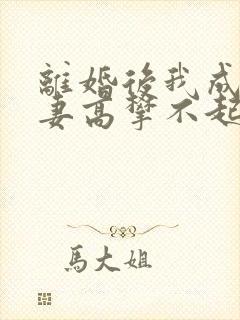 離婚後我成
妻高攀不起
馬大姐